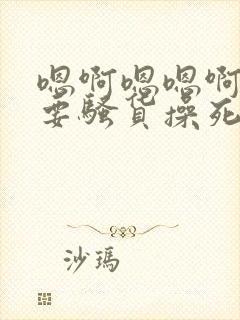 嗯啊嗯嗯啊
要骚货操死
沙瑪